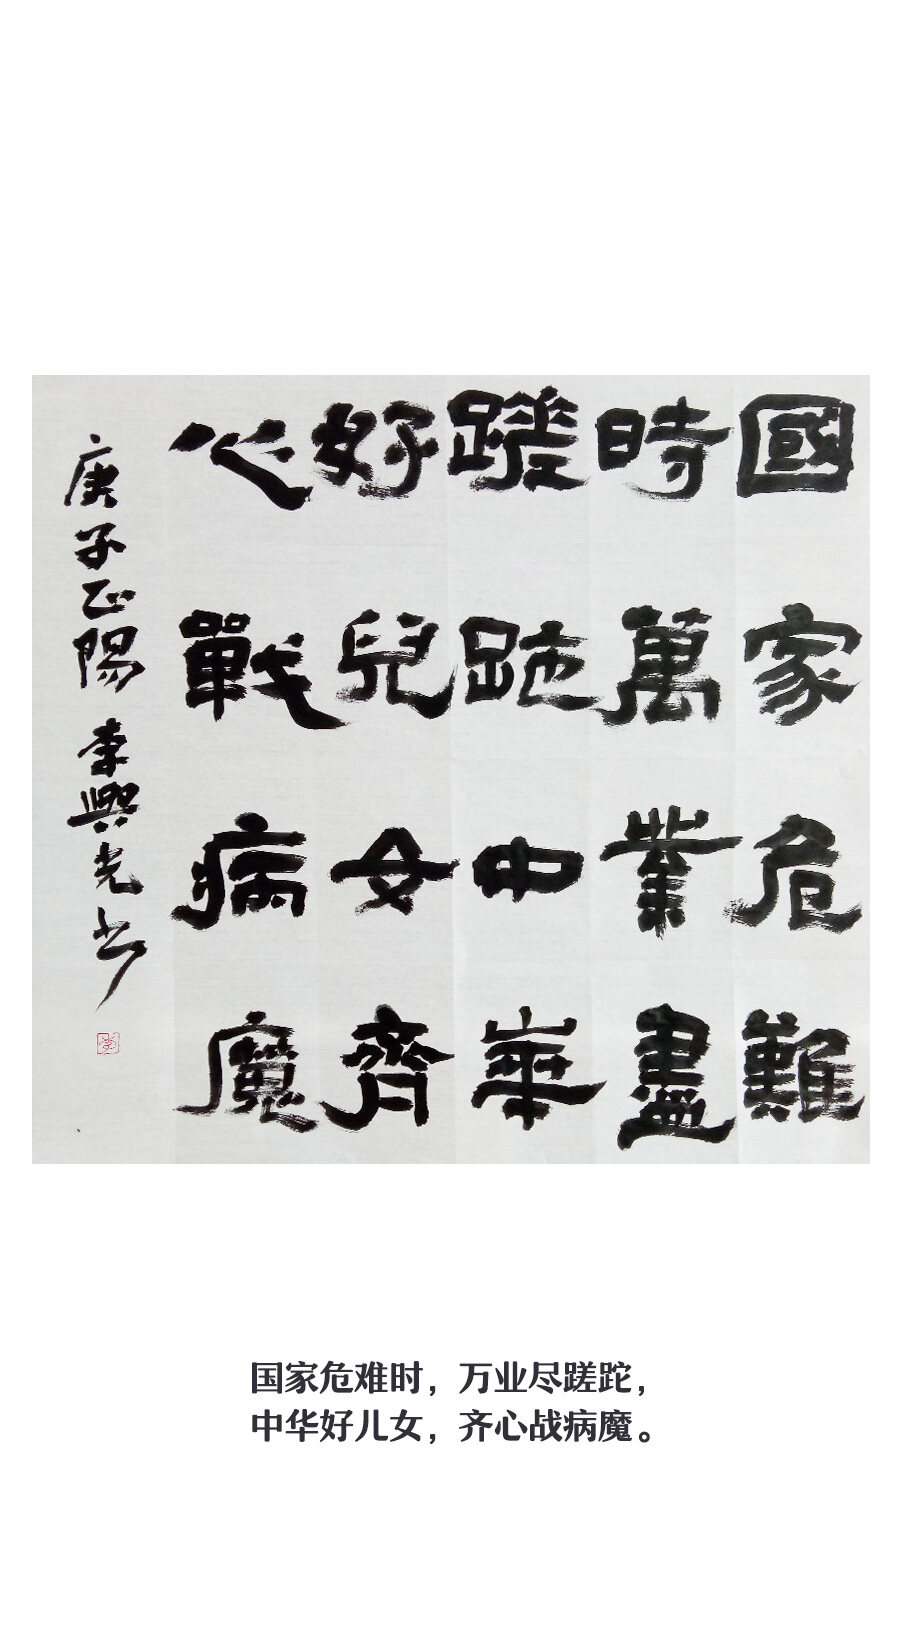 國家危難
時萬業盡
蹉跎中華
好兒女齊
心戰病魔
庚子正陽 李興光书
李
国家危难时，万业尽蹉跎，
中华好儿女，齐心战病魔。